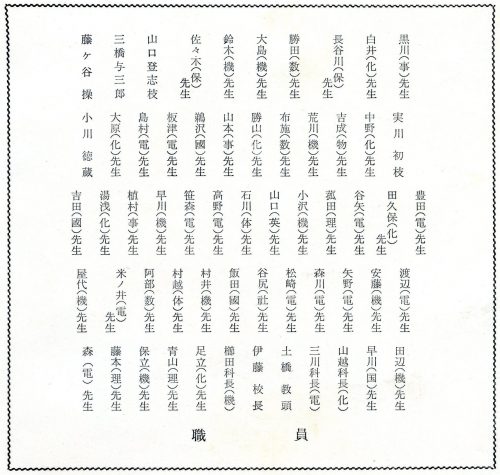 黒川(事)先生
白井(化)先生
長谷川(保)先生
勝田(数)先生
大島(機)先生
鈴木(機)先生
佐々木(保)先生
山口登志枝
三橋与三郎
藤ヶ谷操
実川初枝
中野(化)先生
吉成(物)先生
荒川(機)先生
布施(数)先生
勝山(化)先生
山本(事)先生
鵜沢(國)先生
板津(電)先生
島村(電)先生
大原(化)先生
小川徳蔵
豊田(電)先生
田久保(化)先生
谷矢(電)先生
菰田(理)先生
小沢(機)先生
山口(英)先生
石川(体)先生
高野(電)先生
笹森(電)先生
早川(機)先生
植村(事)先生
湯浅(化)先生
吉田(國)先生
渡辺(電)先生
安藤(機)先生
矢野(電)先生
森川(電)先生
松崎(電)先生
谷尻(社)先生
飯田(國)先生
村井(機)先生
村越(体)先生
阿部(数)先生
米ノ井(電)先生
屋代(機)先生
田辺(機)先生
早川(国)先生
山越科長(化)
三川科長(電)
土橋教頭
伊藤校長
櫛田科長(機)
足立(化)先生
青山(理)先生
保立(機)先生
藤本(理)先生
森(電)先生
職員